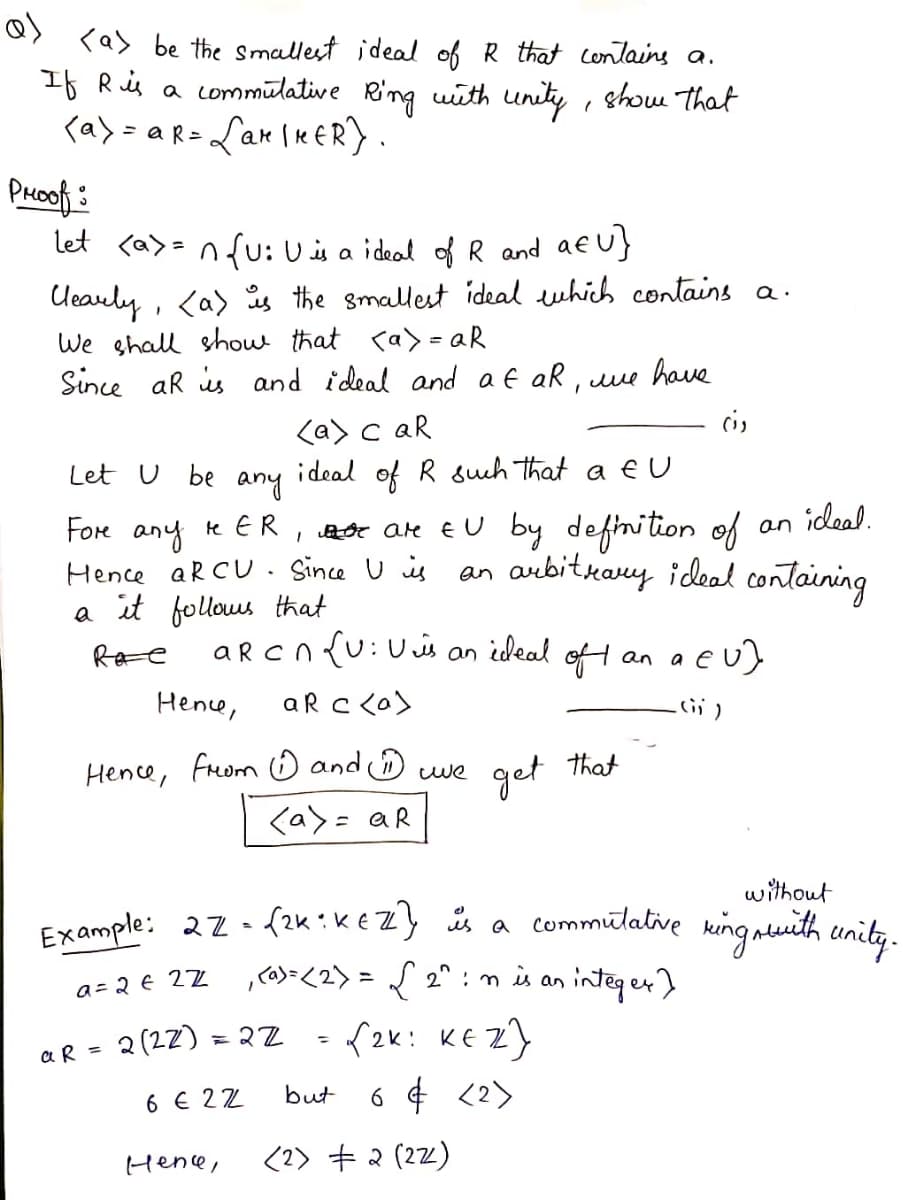 Q) <a> be the smallest ideal of R that contains a.
If R is a commutative Ring with unity, show that
<a> = aR = {ar | r ∈ R}.
Proof:
Let <a> = ∩ {U: U is a ideal of R and a ∈ U}
Clearly, <a> is the smallest ideal which contains a.
We shall show that <a> = aR
Since aR is and ideal and a ∈ aR, we have
<a> ⊂ aR ——— (i)
Let U be any ideal of R such that a ∈ U
For any r ∈ R, ar ∈ U by definition of an ideal.
Hence aR ⊂ U. Since U is an arbitrary ideal containing
a it follows that
aR ⊂ ∩ {U: U is an ideal of an a ∈ U}
Hence, aR ⊂ <a> ——— (ii)
Hence, from (i) and (ii) we get that
<a> = aR
Example: 2ℤ = {2k : k ∈ ℤ} is a commutative ring without unity.
a = 2 ∈ 2ℤ, <a> = <2> = {2ⁿ : n is an integer}
aR = 2(2ℤ) = 2ℤ = {2k : k ∈ ℤ}
6 ∈ 2ℤ but 6 ∉ <2>
Hence, <2> ≠ 2(2ℤ)